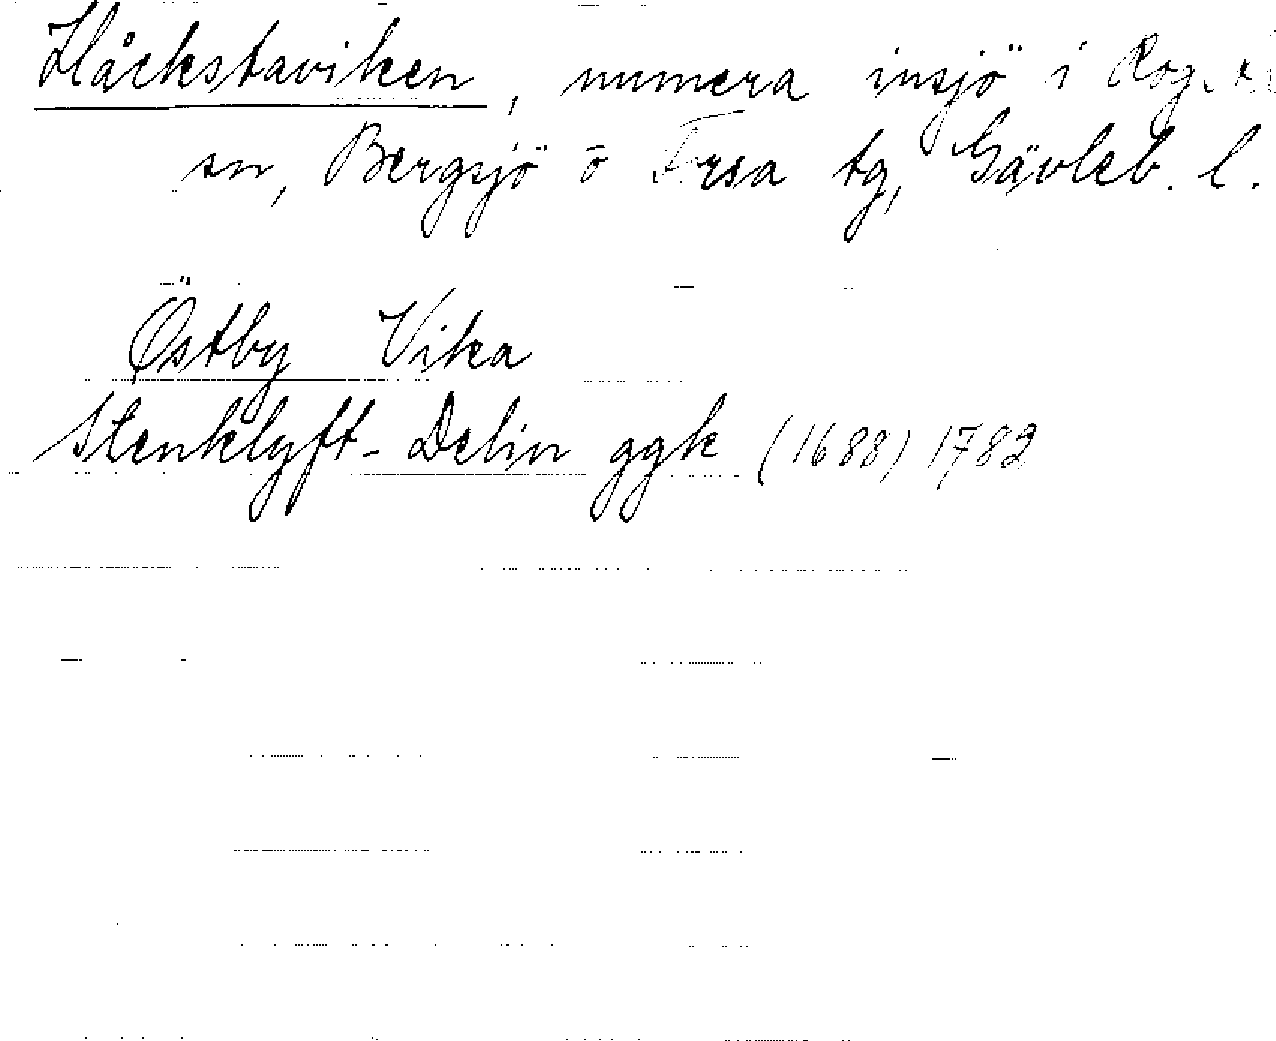 Håckstaviken, numera insjö i Rog.
sn, Bergsjö o Forsa tg, Gävleb. l.
Östby Vika
Stenklyft-Delin ggk (1688) 1782